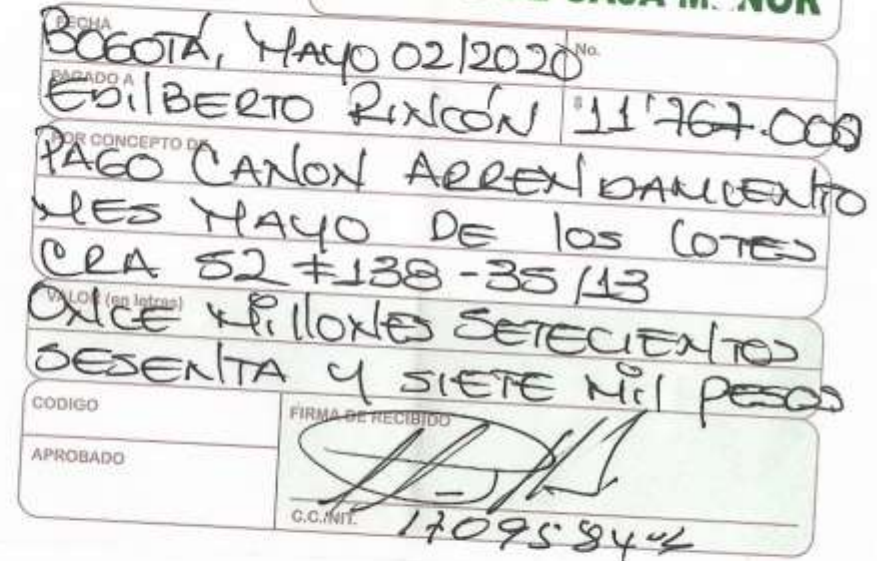 CAJA MENOR
FECHA
BOGOTÁ, MAYO 02/2020
No.
PAGADO A
EDILBERTO RINCÓN
$ 11'767.000
POR CONCEPTO DE
PAGO CANON ARRENDAMIENTO
MES MAYO DE los LOTES
CRA 52 #138-35/13
VALOR (en letras)
ONCE MillONES SETECIENTOS
SESENTA Y SIETE Mil PESOS
CODIGO
FIRMA DE RECIBIDO
APROBADO
C.C./NIT.